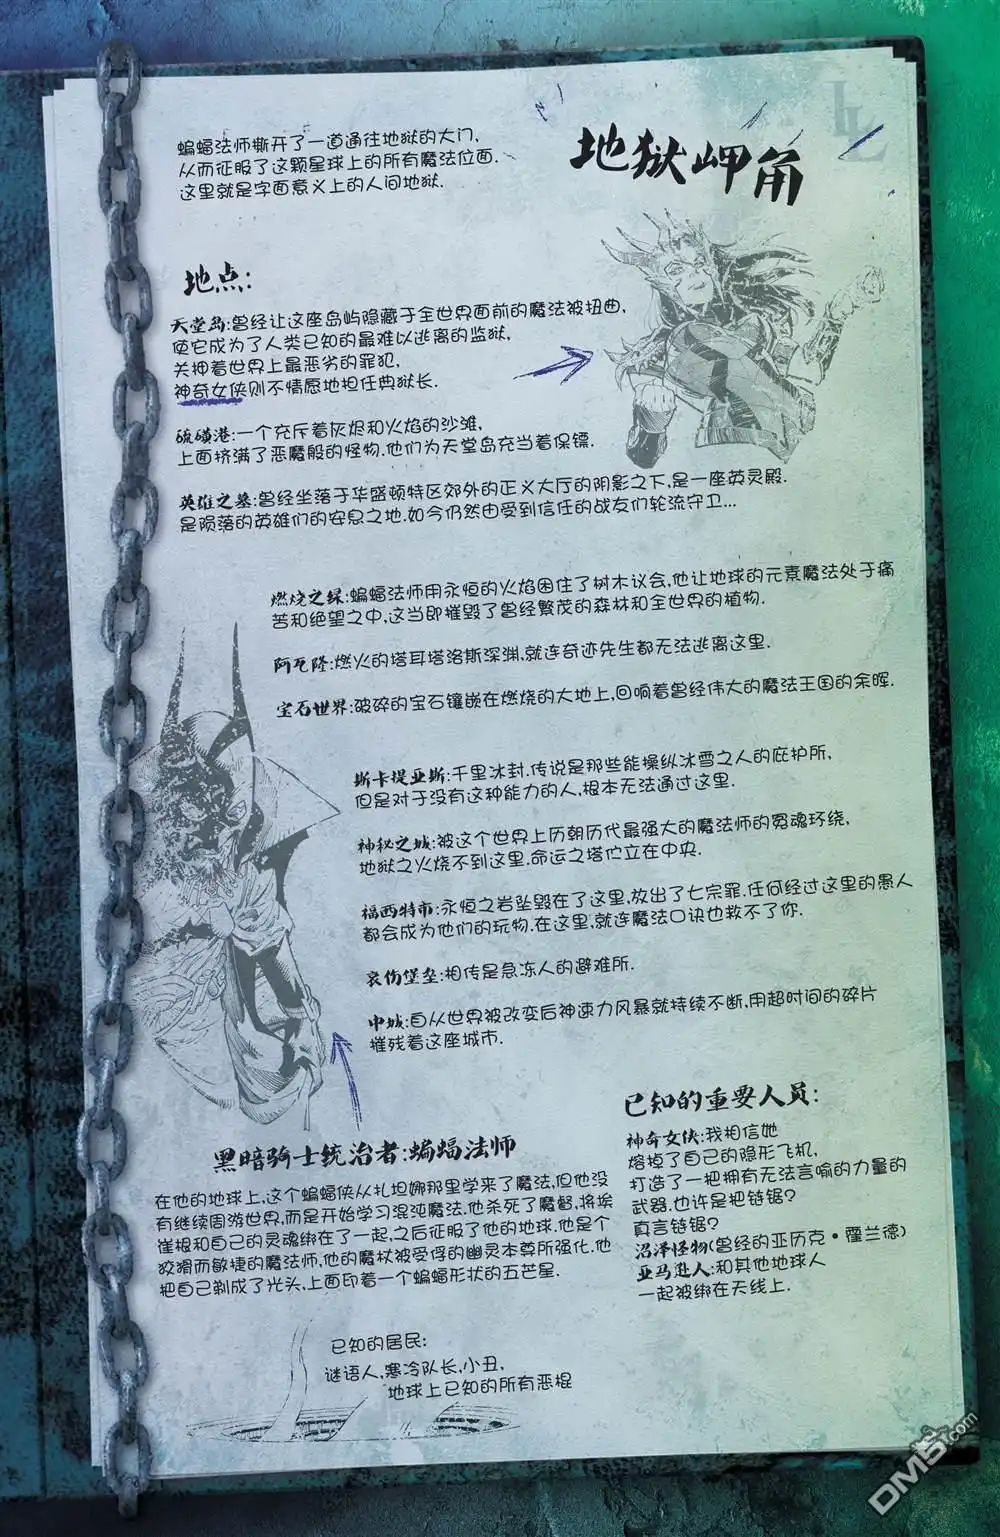 LL
蝙蝠法师撕开了一道通往地狱的大门,
从而征服了这颗星球上的所有魔法位面.
这里就是字面意义上的人间地狱.
地狱岬角
地点:
天堂岛:曾经让这座岛屿隐藏于全世界面前的魔法被扭曲,
使它成为了人类已知的最难以逃离的监狱,
关押着世界上最恶劣的罪犯,
神奇女侠则不情愿地担任典狱长.
硫磺港:一个充斥着灰烬和火焰的沙滩,
上面挤满了恶魔般的怪物.他们为天堂岛充当着保镖.
英雄之墓:曾经坐落于华盛顿特区郊外的正义大厅的阴影之下,是一座英灵殿.
是陨落的英雄们的安息之地.如今仍然由受到信任的战友们轮流守卫...
燃烧之绿:蝙蝠法师用永恒的火焰困住了树木议会,他让地球的元素魔法处于痛
苦和绝望之中,这当即摧毁了曾经繁茂的森林和全世界的植物.
阿瓦隆:燃火的塔耳塔洛斯深渊.就连奇迹先生都无法逃离这里.
宝石世界:破碎的宝石镶嵌在燃烧的大地上,回响着曾经伟大的魔法王国的余晖.
斯卡提亚斯:千里冰封.传说是那些能操纵冰雪之人的庇护所,
但是对于没有这种能力的人,根本无法通过这里.
神秘之城:被这个世界上历朝历代最强大的魔法师的冤魂环绕,
地狱之火烧不到这里.命运之塔伫立在中央.
福西特市:永恒之岩坠毁在了这里,放出了七宗罪.任何经过这里的愚人
都会成为他们的玩物.在这里,就连魔法口诀也救不了你.
哀伤堡垒:相传是急冻人的避难所.
中城:自从世界被改变后神速力风暴就持续不断,用超时间的碎片
摧残着这座城市.
已知的重要人员:
神奇女侠:我相信她
熔掉了自己的隐形飞机,
打造了一把拥有无法言喻的力量的
武器.也许是把链锯?
真言链锯?
沼泽怪物(曾经的亚历克·霍兰德)
亚马逊人:和其他地球人
一起被绑在天线上.
黑暗骑士统治者:蝙蝠法师
在他的地球上,这个蝙蝠侠从扎坦娜那里学来了魔法,但他没
有继续周游世界,而是开始学习混沌魔法.他杀死了魔督,将埃
崔根和自己的灵魂绑在了一起,之后征服了他的地球.他是个
狡猾而敏捷的魔法师,他的魔杖被受俘的幽灵本尊所强化.他
把自己剃成了光头,上面印着一个蝙蝠形状的五芒星.
已知的居民:
谜语人,寒冷队长,小丑,
地球上已知的所有恶棍
DM5.com